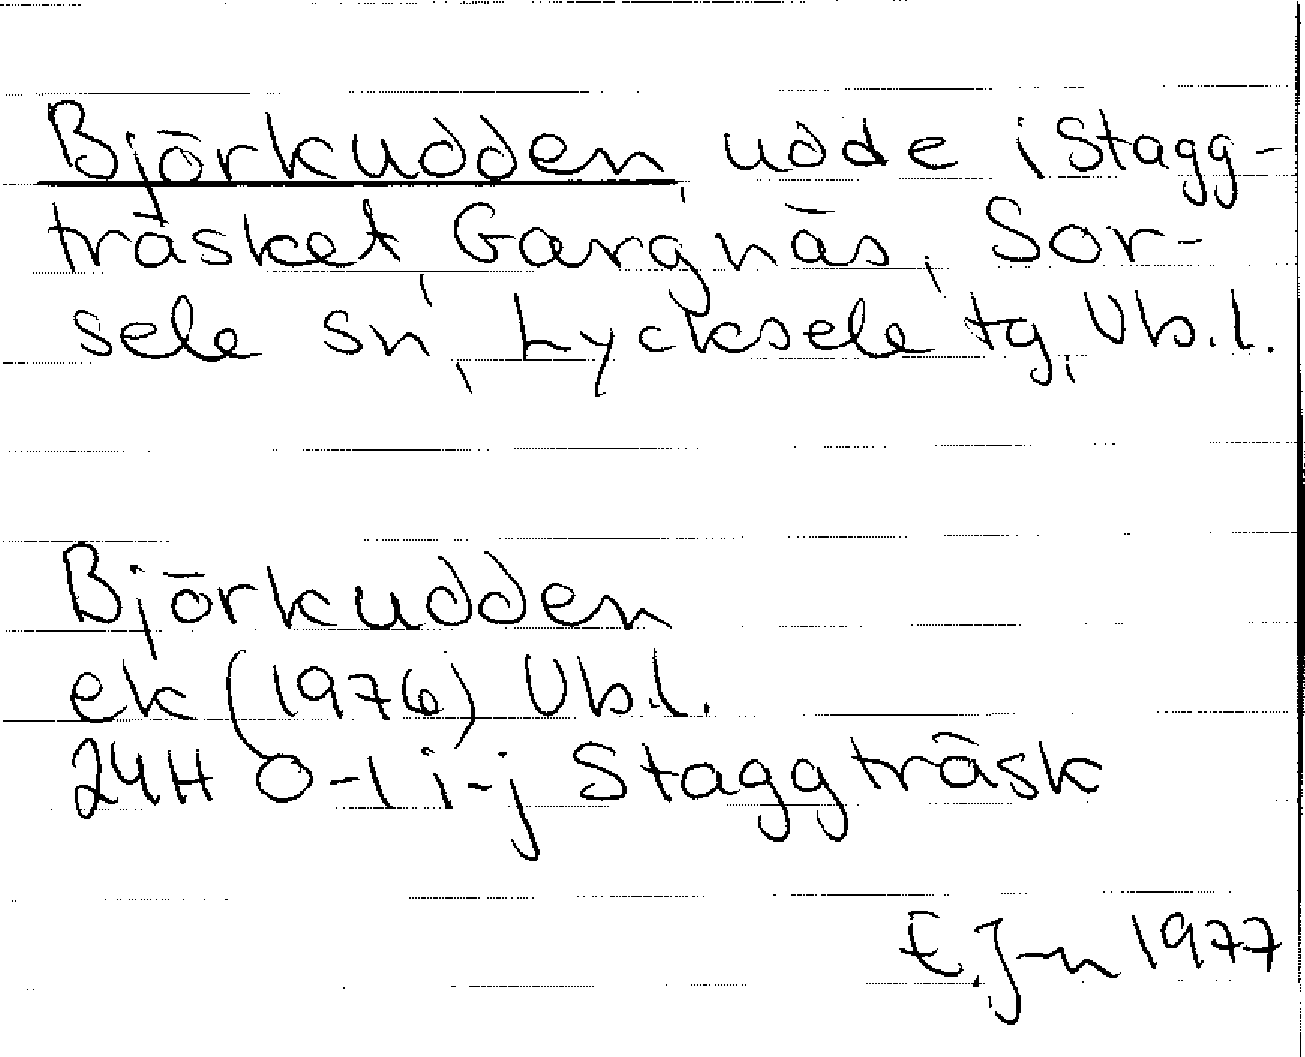 Björkudden, udde i Stagg-
träsket, Gargnäs, Sor-
sele sn, Lycksele tg, Vb.l.
Björkudden
ek (1976) Vb.l.
24H 0-1 i-j Staggträsk
E. J-n 1977